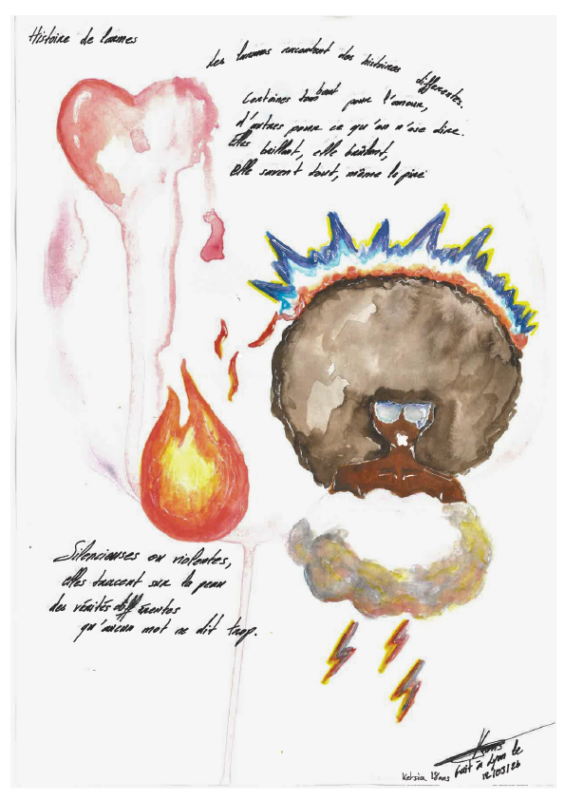 Histoire de larmes
des larmes racontent des histoires différentes.
Certaines tombent pour l'amour,
d'autres pour ce qu'on n'ose dire.
Elles brillent, elle brûlent,
Elle savent tout, même le pire
Silencieuses ou violentes,
elles tracent sur la peau
des vérités différentes
qu'aucun mot ne dit trop.
fait à Lyon le
Ketsia 18ans
12/03/26